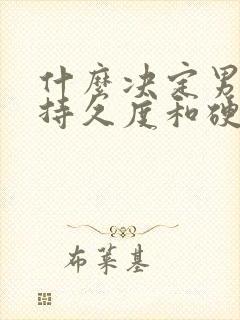 什麼决定男
持久度和硬
布莱基